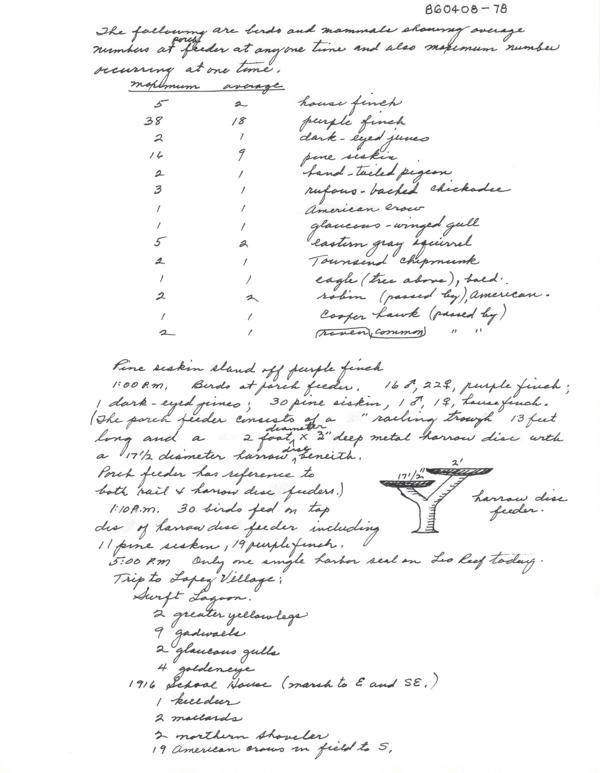 860408-78
The following are birds and mammals showing average
numbers at porch feeder at any one time and also maximum number
occurring at one time.
maximum average
5 2 house finch
38 18 purple finch
2 1 dark-eyed junco
16 9 pine siskin
2 1 band-tailed pigeon
3 1 rufous-backed chickadee
1 1 American crow
1 1 glaucous-winged gull
5 2 eastern gray squirrel
2 1 Townsend chipmunk
1 1 eagle (tree above), bald.
2 2 robin (passed by), American.
1 1 Cooper hawk (passed by)
2 1 raven, common " "
Pine siskin stand off purple finch
1:00 P.M. Birds at porch feeder. 16 ♂, 22 ♀, purple finch;
1 dark-eyed junco; 30 pine siskin, 1 ♂, 1 ♀, house finch.
(The porch feeder consists of a " railing trough 13 feet
long and a 2 foot diameter x 3" deep metal harrow disc with
a 17 1/2 diameter harrow disc beneith.
Porch feeder has reference to
both rail & harrow disc feeders.)
17 1/2" 2'
harrow disc
feeder.
1:10 P.M. 30 birds fed on top
disc of harrow disc feeder including
11 pine siskin, 19 purple finch.
5:00 P.M Only one single harbor seal on Leo Reef today.
Trip to Lopez Village;
Swift Lagoon.
2 greater yellowlegs
9 gadwalls
2 glaucous gulls
4 goldeneye
1916 School House (marsh to E and SE.)
1 killdeer
2 mallards
2 northern shoveler
19 American crows in field to S.